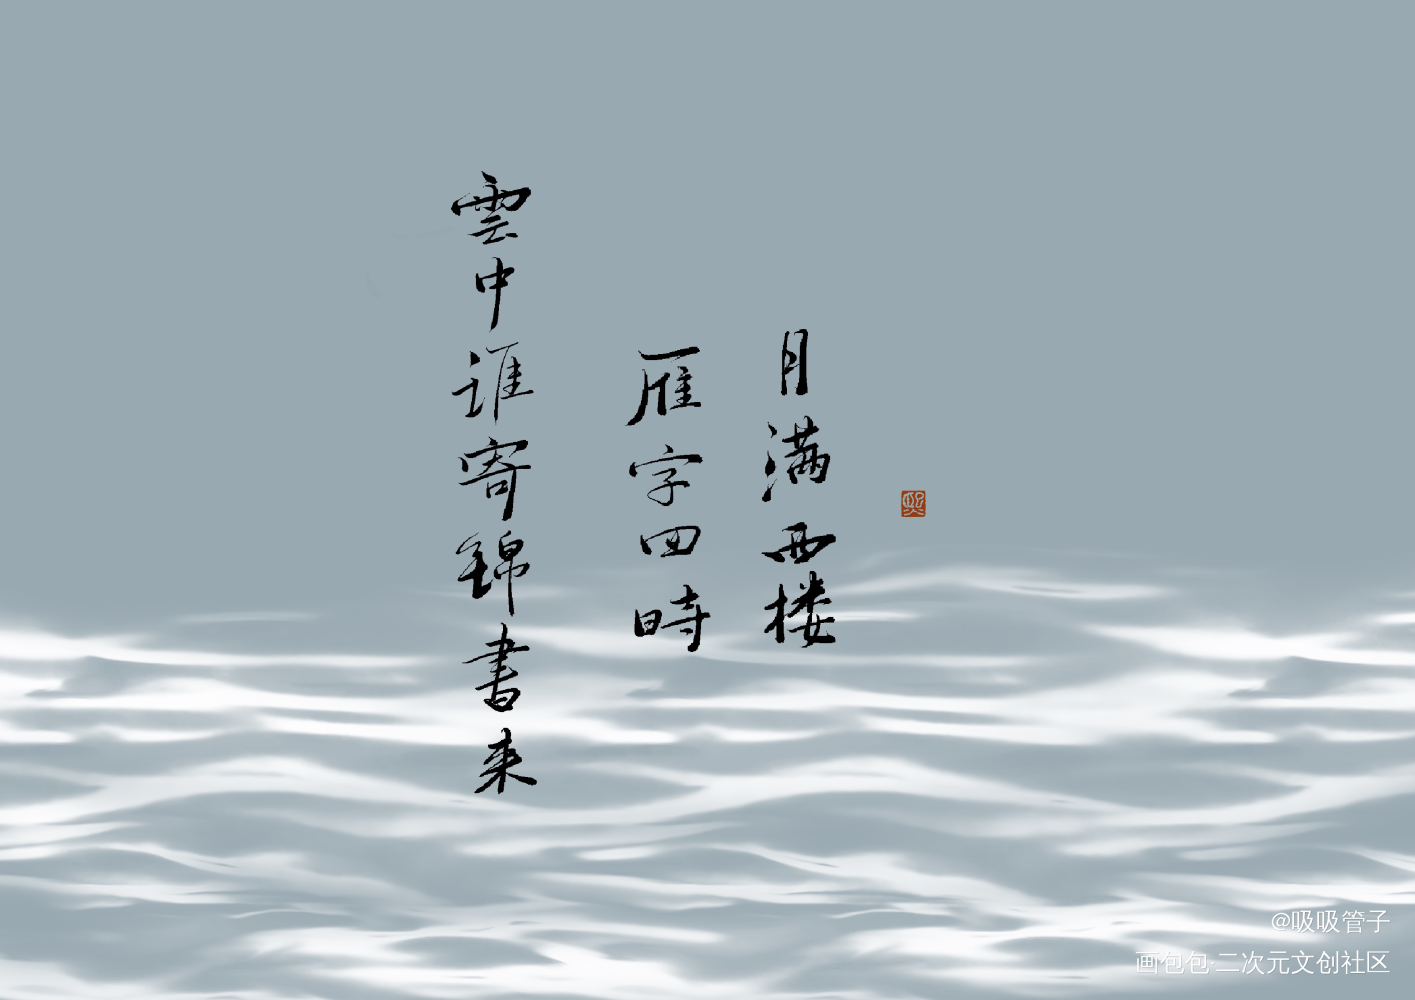 月满西楼
雁字回時
雲中谁寄錦書来
熙
@吸吸管子
画包包·二次元文创社区